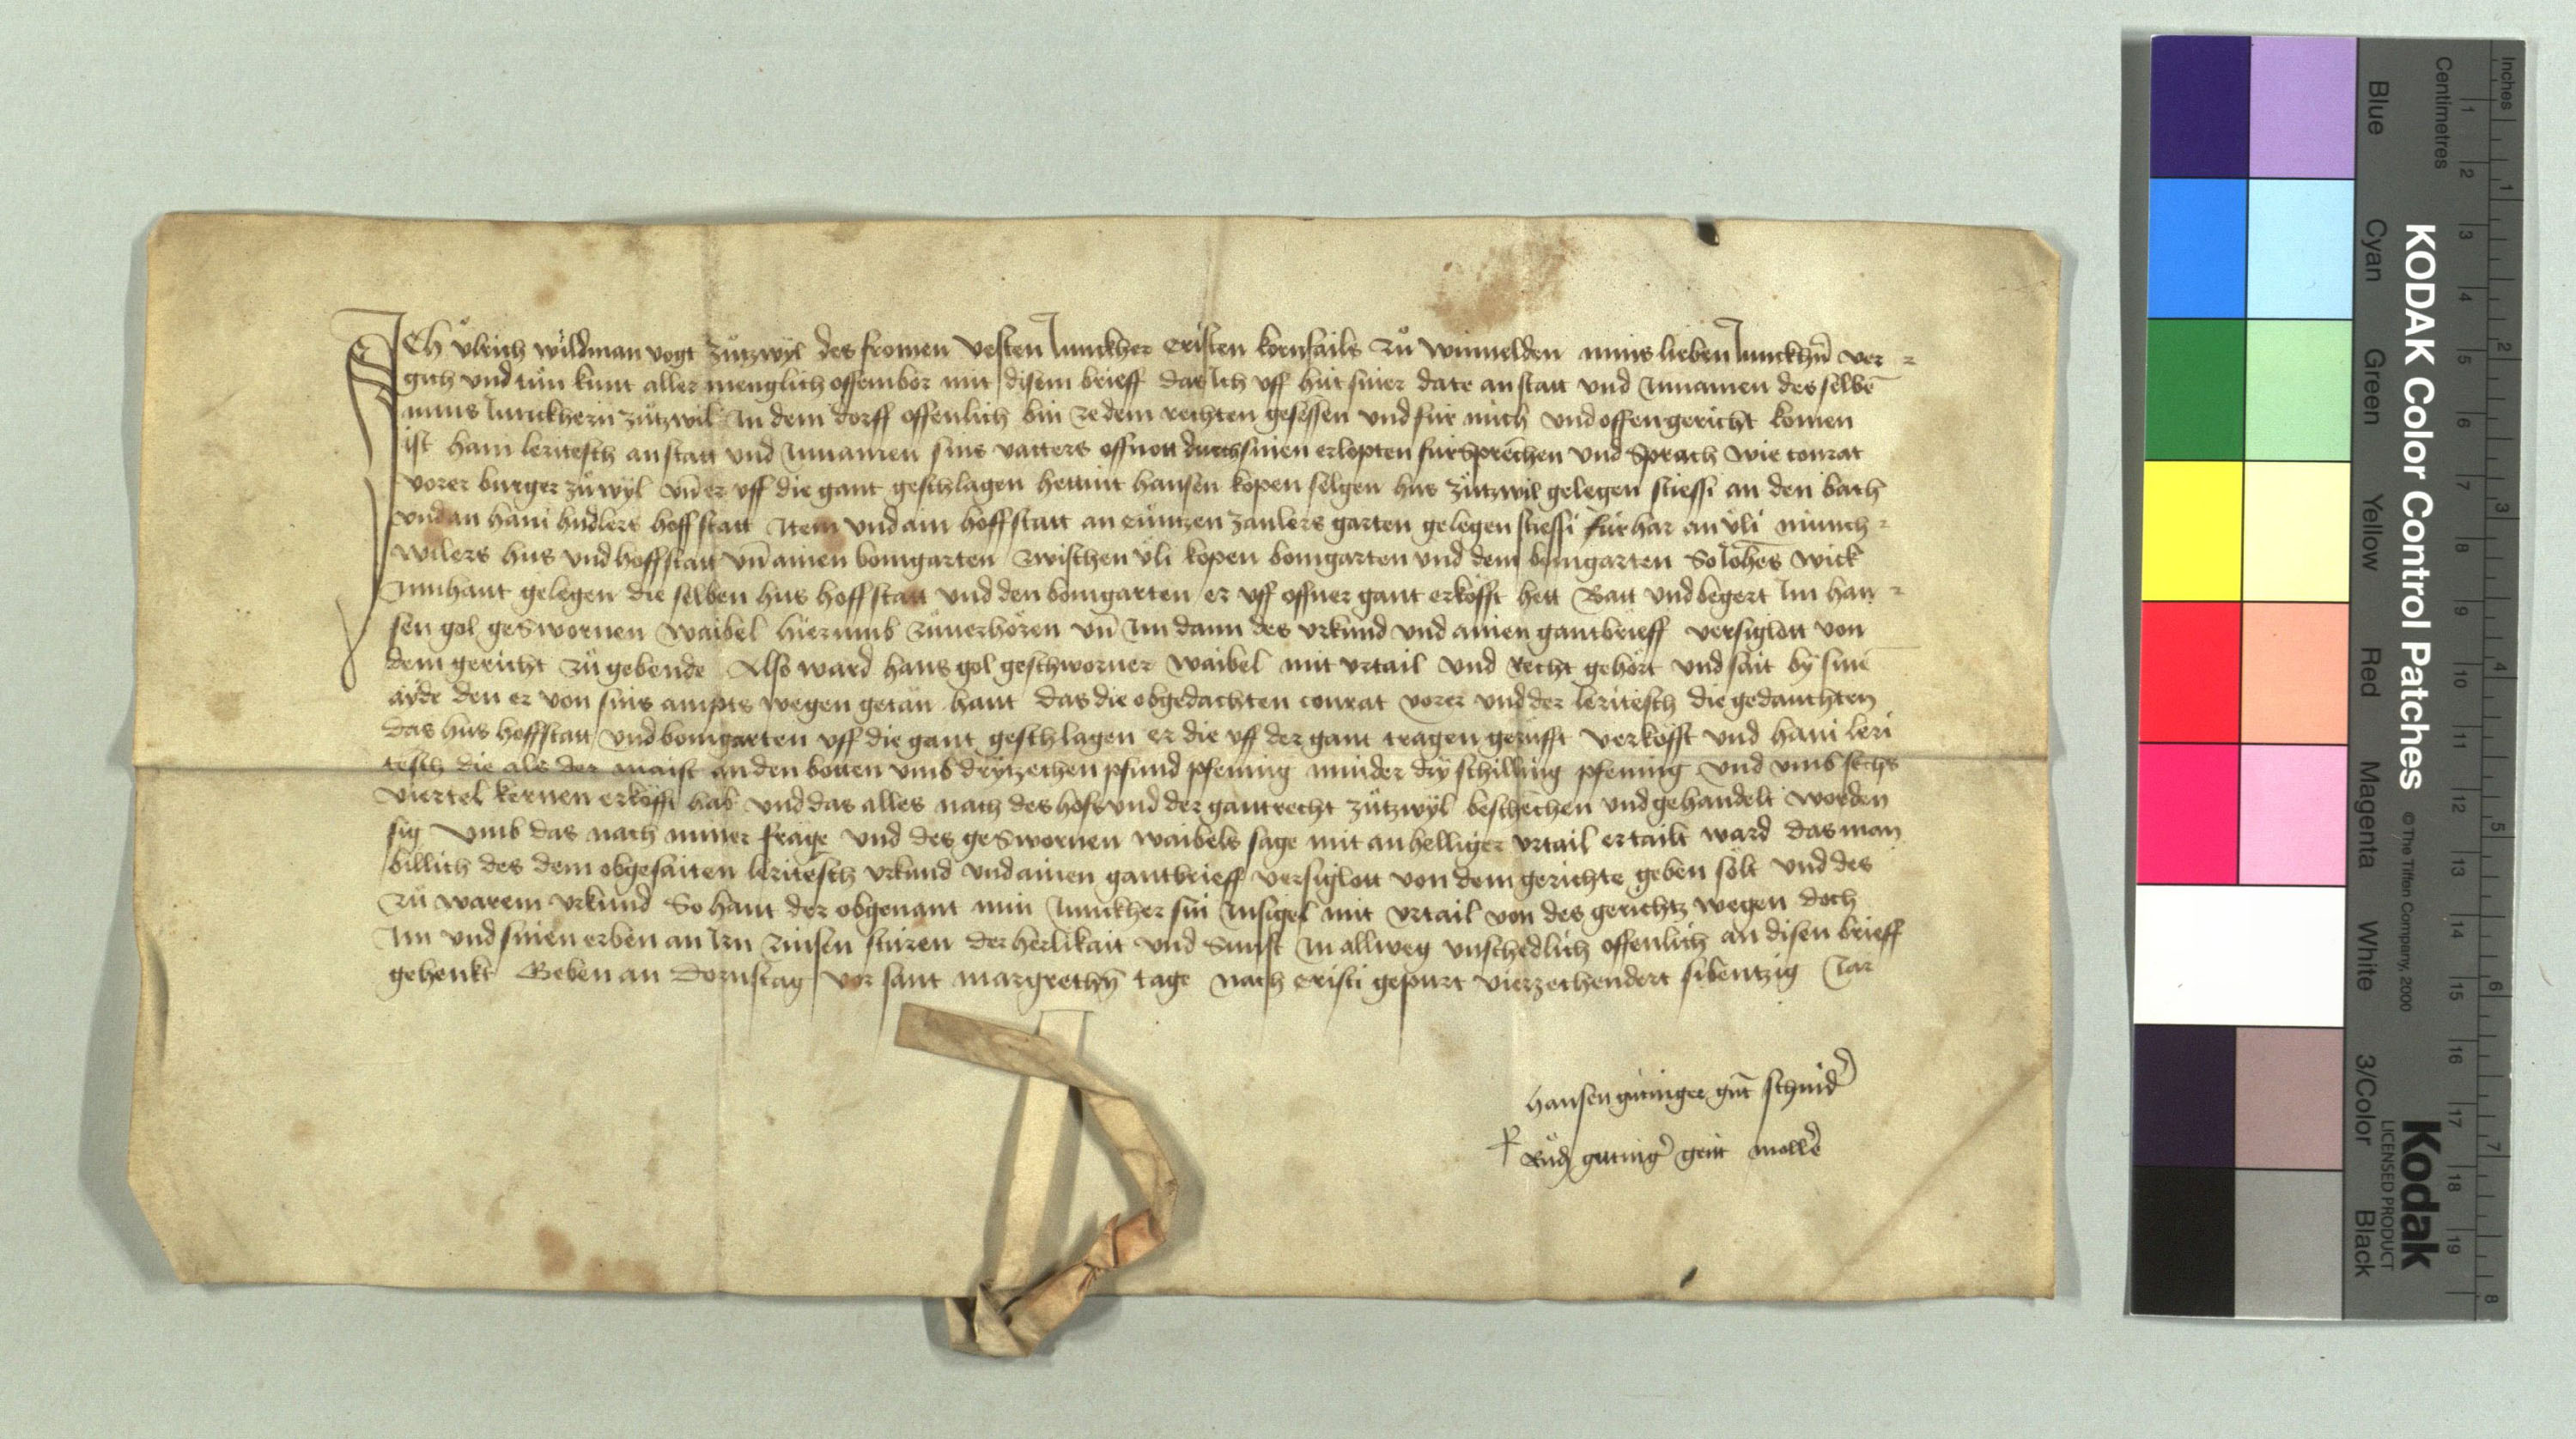 Ich ůlrich wildman vogt zůtzwÿl des fromen vesten Junckher cristen kornfails zů winuelden mins lieben Junckhrñ ver=
gich vnd tůn kunt aller menglich offembor mit disem brieff das Ich vff hút siner date an statt vnd Innamen des selbẽ
mins Junckhern zůtzwil In dem dorff offenlich bin ze dem rechten gesessen vnd fúr mich vnd offen gericht komen
ist hani leritesch an statt vnd Innamen sins vatters offnott durch sinen erlopten fúrsprechen vnd sprach wie conrat
vorer burger zů wÿl vñ er vff die gant geschlagen hettint hansen kopen selgen hus zůtzwil gelegen stiessi an den bach
vnd an hani hudlers hoffstatt Item vnd ain hoffstatt an cůntzen zanlers garten gelegen stiessi fúrhar an ůli münch=
wilers hus vnd hoffstatt vñ ainen bomgarten zwischen ůli kopen bomgarten vnd dem bomgarten so Johẽs wick
Innhant gelegen die selben hus hoffstatt vnd den bomgarten er vff offner gant erkôfft hett Batt vnd begert Im han=
sen gol geswornen waibel hierumb zůuerhôren vñ Im dann des vrkúnd vnd ainen gantbrieff versiglott von
dem gericht zů gebende Also ward hans gol geschworner waibel mit vrtail vnd recht gehôrt vnd sait bÿ sinẽ
aÿde den er von sins ampts wegen getan hant das die obgedachten conrat vorer vnd der leritesch die gedauchten
das hus hoffstatt vnd bomgarten vff die gant geschlagen er die vff der gant tragen gerüfft verkôfft vnd hani leri
tesch die als der maist an den botten vmb drÿtzechen pfund pfening minder drÿ schilling pfening vnd vmb sechs
viertel kernen erkôfft hab vnd das alles nach des hofs vnd der gantrecht zůtzwÿl beschechen vnd gehandelt worden
sig vmb das nach miner frage vnd des geswornen waibels sage mit anhelliger vrtail ertailt ward das man
billich des dem obgesaiten leritesch vrkúnd vnd ainen gantbrieff versiglott von dem gerichte geben sôlt vnd des
zů warem vrkúnd So hant der obgenant min Junckher sin Insigel mit vrtail von des gerichtz wegen doch
Im vnd sinen erben an Irn zinsen stúren der herlikait vnd sunst In allweg vnschedlich offenlich an disen brieff
gehenkt Geben an Dornstag vor sant margrethñ tage nach cristi gepurt vierzechendert sibentzig Jar
hansen gúttinger gñt schnidꝰ
Růdj gúttingꝰ gent